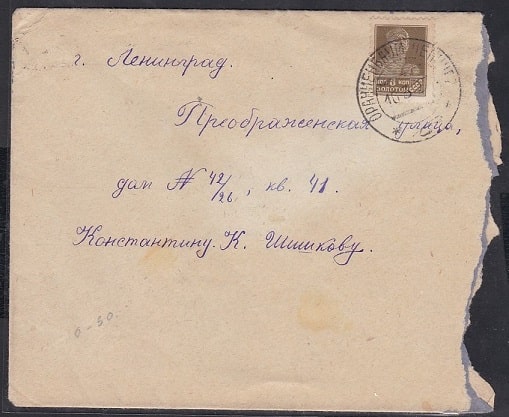 г. Ленинград.
Преображенская улица,
дом № 42/26, кв. 41.
Константину. К. Шишкову.
8 КОП
ЗОЛОТОМ
0-50